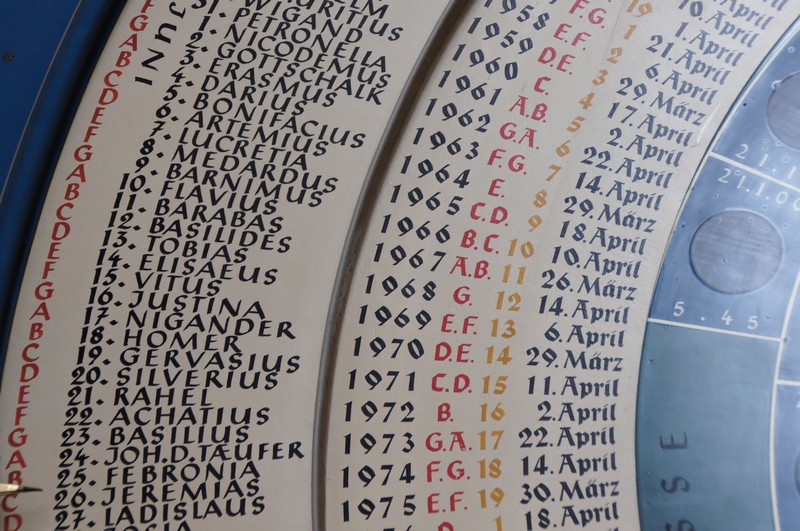 MAURITIUS
WIGAND
31· PETRONELLA
1· NICODEMUS
2· GOTTSCHALK
3· ERASMUS
4· DARIUS
5· BONIFACIUS
6· ARTEMIUS
7· LUCRETIA
8· MEDARDUS
9· BARNIMUS
10· FLAVIUS
11· BARABAS
12· BASILIDES
13· TOBIAS
14· ELISAEUS
15· VITUS
16· JUSTINA
17· NIGANDER
18· HOMER
19· GERVASIUS
20· SILVERIUS
21· RAHEL
22· ACHATIUS
23· BASILIUS
24· JOH.D.TÆUFER
25· FEBRONIA
26· JEREMIAS
27· LADISLAUS
JUNI
F
G
A
B
C
D
E
F
G
A
B
C
D
E
F
G
A
B
C
D
E
F
G
A
B
C
D
19 10.April
1.April
F.G. 1 21.April
1958 E.F. 2 6.April
1959 D.E. 3 29.März
1960 C. 4 17.April
1961 A.B. 5 2.April
1962 G.A. 6 22.April
1963 F.G. 7 14.April
1964 E. 8 29.März
1965 C.D. 9 18.April
1966 B.C. 10 10.April
1967 A.B. 11 26.März
1968 G. 12 14.April
1969 E.F. 13 6.April
1970 D.E. 14 29.März
1971 C.D. 15 11.April
1972 B. 16 2.April
1973 G.A. 17 22.April
1974 F.G. 18 14.April
1975 E.F. 19 30.März
D 1 18.April
21.1
21.1.00
5.45
SSE